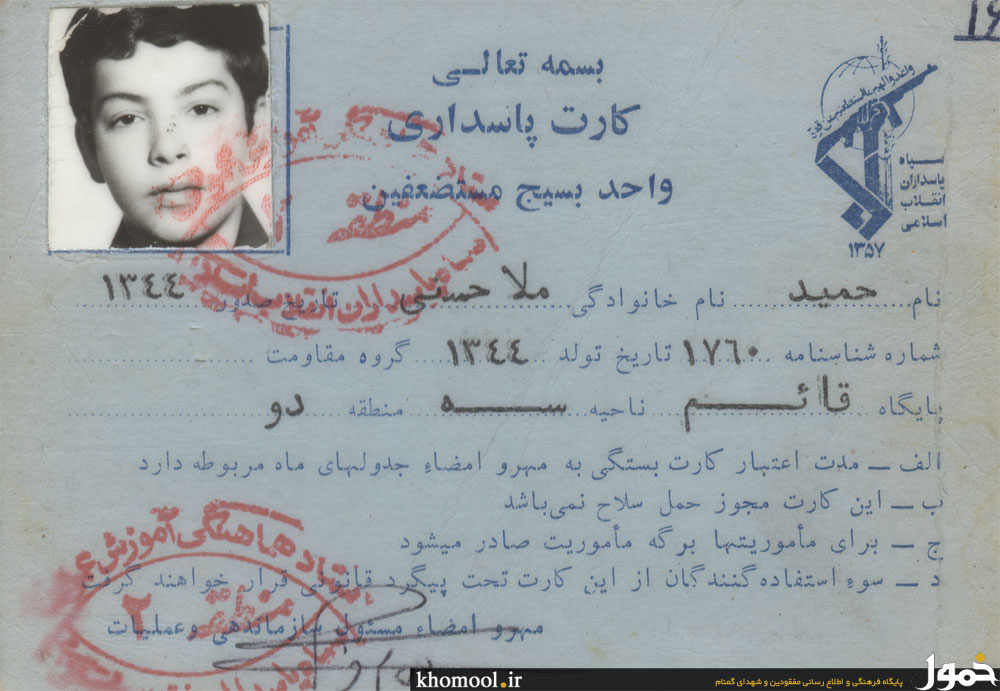 بسمه تعالی
کارت پاسداری
واحد بسیج مستضعفین
سپاه
پاسداران
انقلاب
اسلامی
۱۳۵۷
نام حمید نام خانوادگی ملا حسنی تاریخ صدور ۱۳٤٤
شماره شناسنامه ۱۷٦۰ تاریخ تولد ۱۳٤٤ گروه مقاومت
پایگاه قائم ناحیه سه منطقه دو
الف ـ مدت اعتبار کارت بستگی به مهرو امضاء جدولهای ماه مربوطه دارد
ب ـ این کارت مجوز حمل سلاح نمی‌باشد
ج ـ برای مأموریتها برگه مأموریت صادر میشود
د ـ سوء استفاده‌کنندگان از این کارت تحت پیگرد قانونی قرار خواهند گرفت
مهرو امضاء مسئول سازماندهی وعملیات
هماهنگی آموزش
منطقه
۲
khomool.ir
پایگاه فرهنگی و اطلاع رسانی مفقودین و شهدای گمنام
خمول